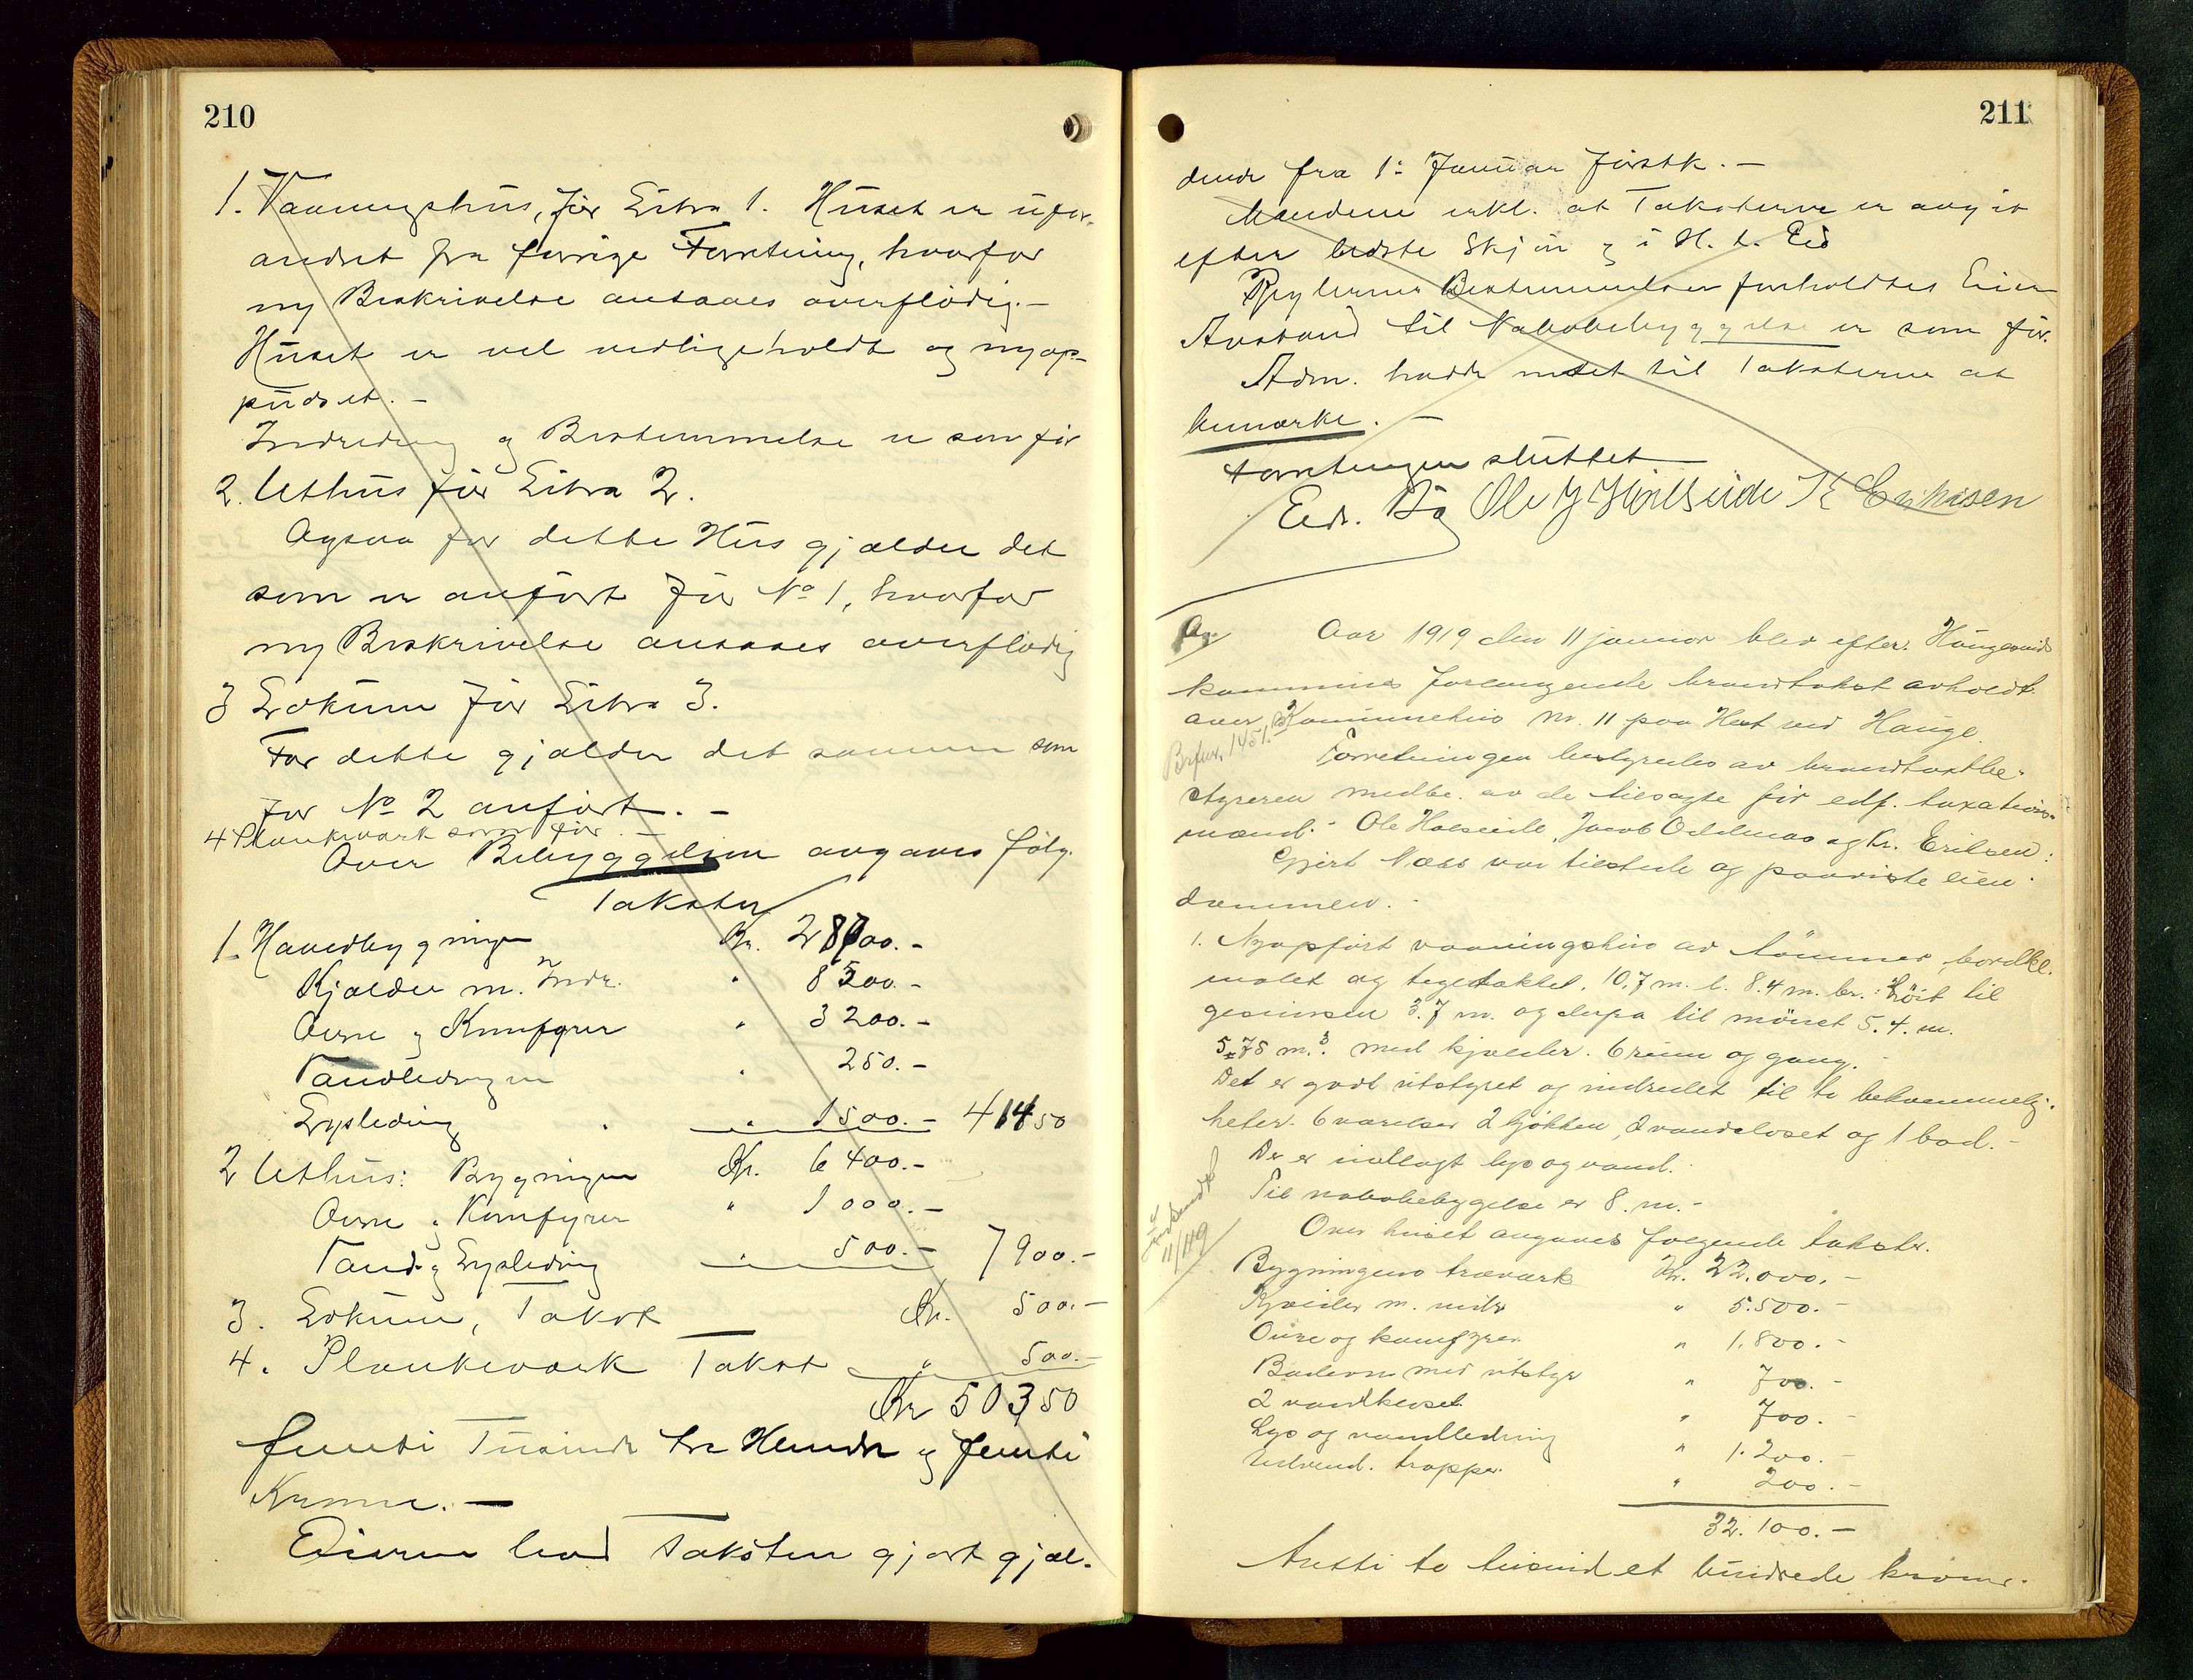 210
1. Vaaningshus, før Litra 1. Huset er ufor-
andret fra forrige Forretning, hvorfor
ny Beskrivelse ansaaes overflödig. —
Huset er vel vedligeholdt og nyop-
pudset. —
Indredning og Bestemmelse er som før
2. Uthus før Litra 2.
Ogsaa for dette Hus gjælder det
som er anført for No 1, hvorfor
ny Beskrivelse ansaaes overflødig
3 Lokum før Litra 3.
For dette gjælder det samme som
for No 2 anført. —
4 Plankeværk som før. —
Over Bebyggelsen avgaves følg.
Takster
1. Hovedbygningen Kr. 28000. —
Kjælder m. Indr. " 8500. —
Ovne og Komfyrer " 3200. —
Vandledningen " 250. —
Lysledning " 1500. — 41450
2 Uthus: Bygningen Kr. 6400. —
Ovne og Komfyrer " 1000. —
Vand- og Lysledning " 500. — 7900. —
3. Lokum, Takst Kr. 500. —
4. Plankeværk Takst " 500. —
Kr 50350
femti Tusinde tre Hundre og femti
Kroner. —
Eieren lod Taksten gjort gjæl-
211
dende fra 1ste Januar førstk. —
Mændene erkl. at Taksterne er avgit
efter bedste Skjøn og i H. t. Ed
Reglernes Bestemmelser forholdtes Eieren
Avstand til Nabobebyggelse er som før.
Adm. hadde intet til Taksterne at
bemærke. —
Forretningen sluttet
Ole J Halseide K Eriksen
Aar 1919 den 11 januar blev efter Haugesunds
kommunes forlangende brandtakst avholdt
over Kommunehus nr. 11 paa Hest ved Hauge.
Brfors. 1451.
Forretningen bestyredes av brandtakstbe-
styreren medbe. av de tilsagte før edf. taxations-
mænd: Ole Halseide, Jacob Oddenæs og Kr. Eriksen:
Gjert Næss var tilstede og paaviste eien-
dommen. -
1. Nyopført vaaningshus av tömmer, bordkl.
malet og tegeltakket. 10,7 m. l. 8.4 m. br. Höit til
gesimsen 3.7 m. og derpa til mönet 5.4. m.
575 m.3. med kjælder. 6 rum og gang. -
Det er godt utstyret og indredet til to bekvemmelig-
heter. 6 værelser 2 kjøkken, 2 vandcloset og 1 bad. -
Der er indlagt lys og vand.
Til nabobebygelse er 8. m. -
Over huset avgaves følgende takster.
11/1 19
Bygningens træværk Kr. 22.000. —
Kjælder m. indr " 5.500. —
Ovne og komfyrer " 1.800. —
Badeovn med utstyr " 700. —
2 vandkloset " 700. —
Lys og vandledning " 1.200. —
Utvend. trapper. " 200. —
32.100. —
tretti to tusind et hundrede kroner.